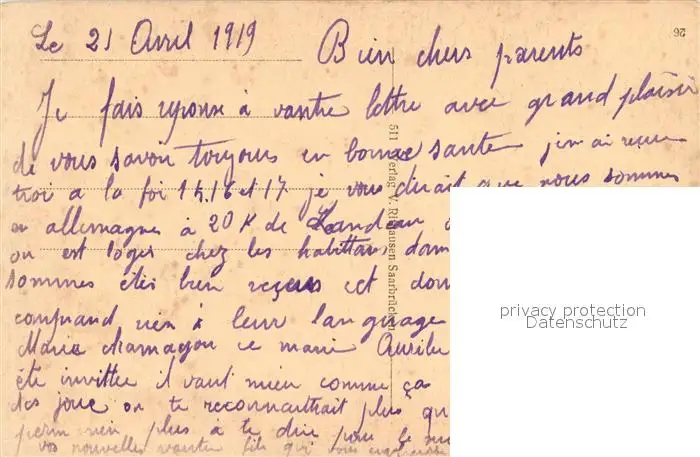 Le 21 Avril 1919
Bien chers parents
Je fais reponse à vautre lettre avec grand plaisir
de vous savoir toujours en bonne sante j'en ai recu
troi a la foi 15.16 et 17 je vous dirait que nous sommes
en allemagne à 20 K de Landeau
on est loger chez les habittans dans
sommes étés bien reçus et don
comprand rien à leur language
Marie chamagou ce marie
été invittee il vaut mieu comme ça
des joue on te reconnaittrait plus qu
rien plus à te dire pour le
vos nouvelles vautre fils qui vous
511 Verlag V. Saarbrücken
26
privacy protection
Datenschutz